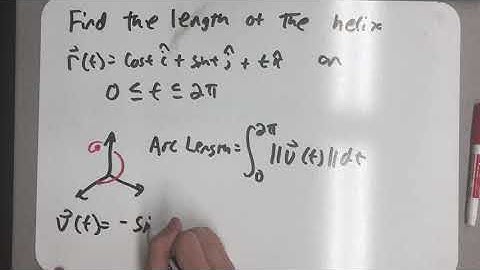 Find the length of the helix
r⃗(t)= cost î + sint ĵ + t k̂ on
0 ≤ t ≤ 2π
Arc Length = ∫₀^2π ||v⃗(t)|| dt
v⃗(t)= - si